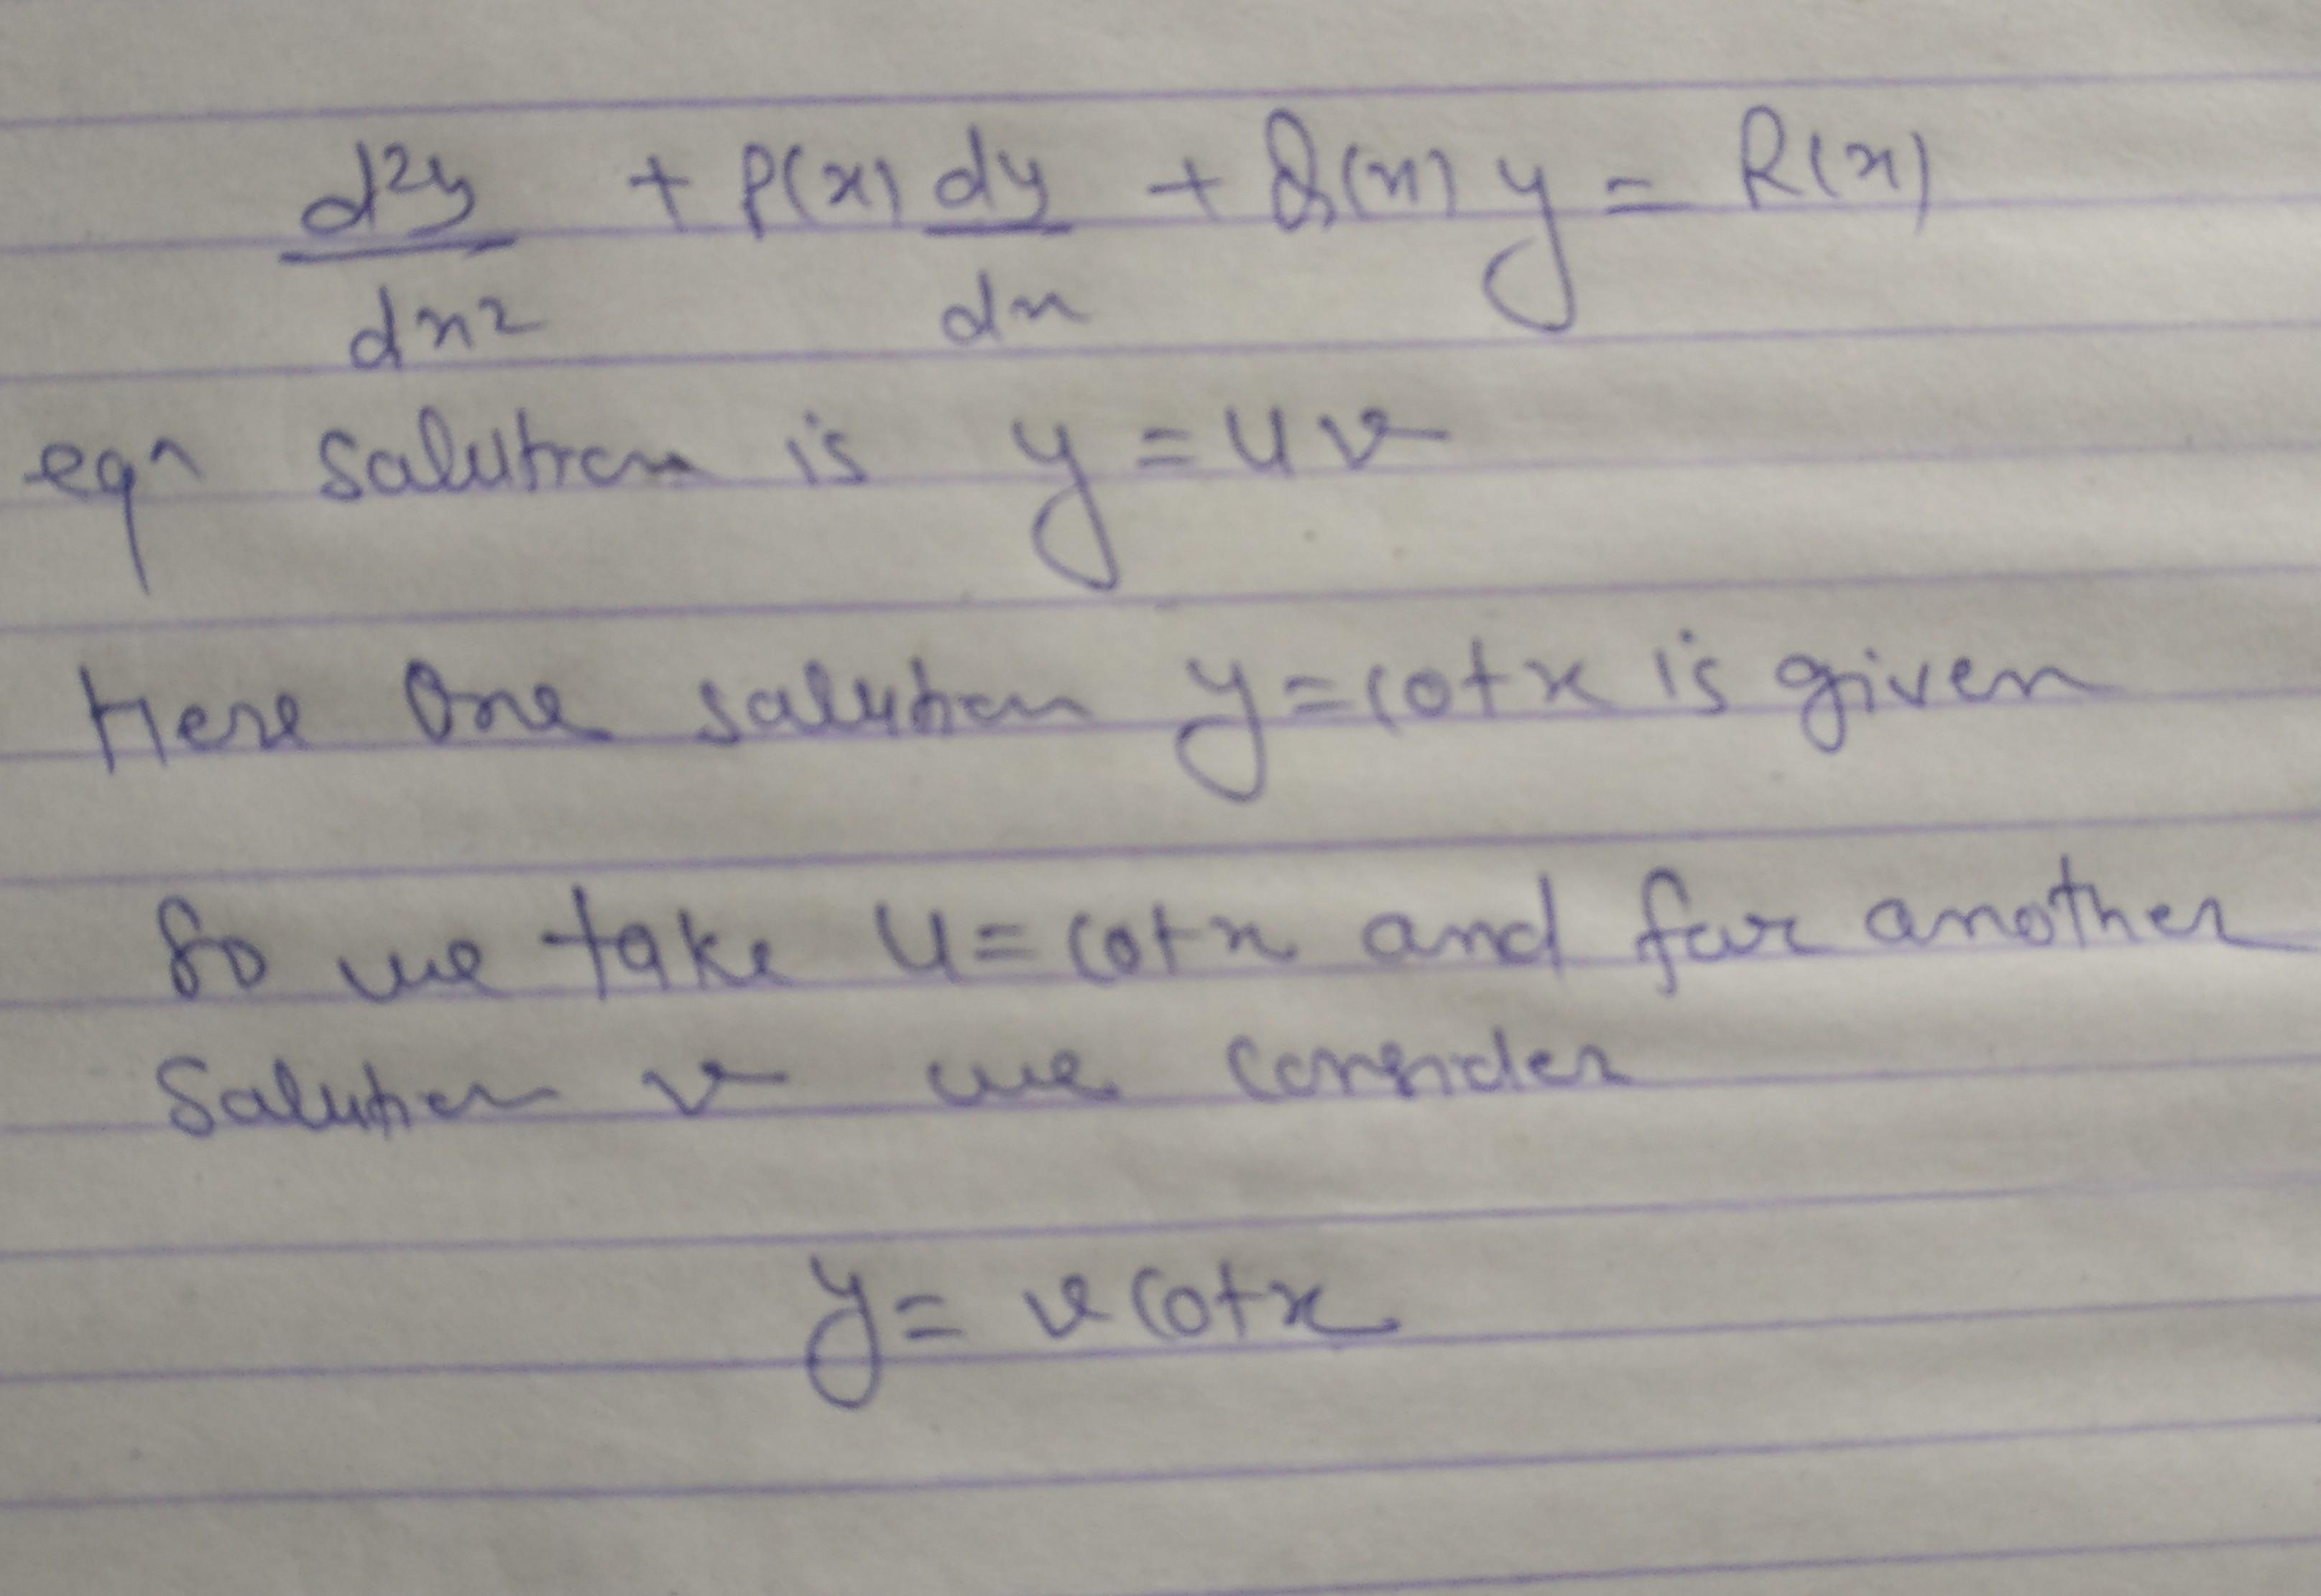 d²y/dx² + P(x) dy/dx + Q(x) y = R(x)
eqn solution is y = uv
Here One solution y = cotx is given
So we take u = cotx and for another
Solution v we consider
y = v cotx